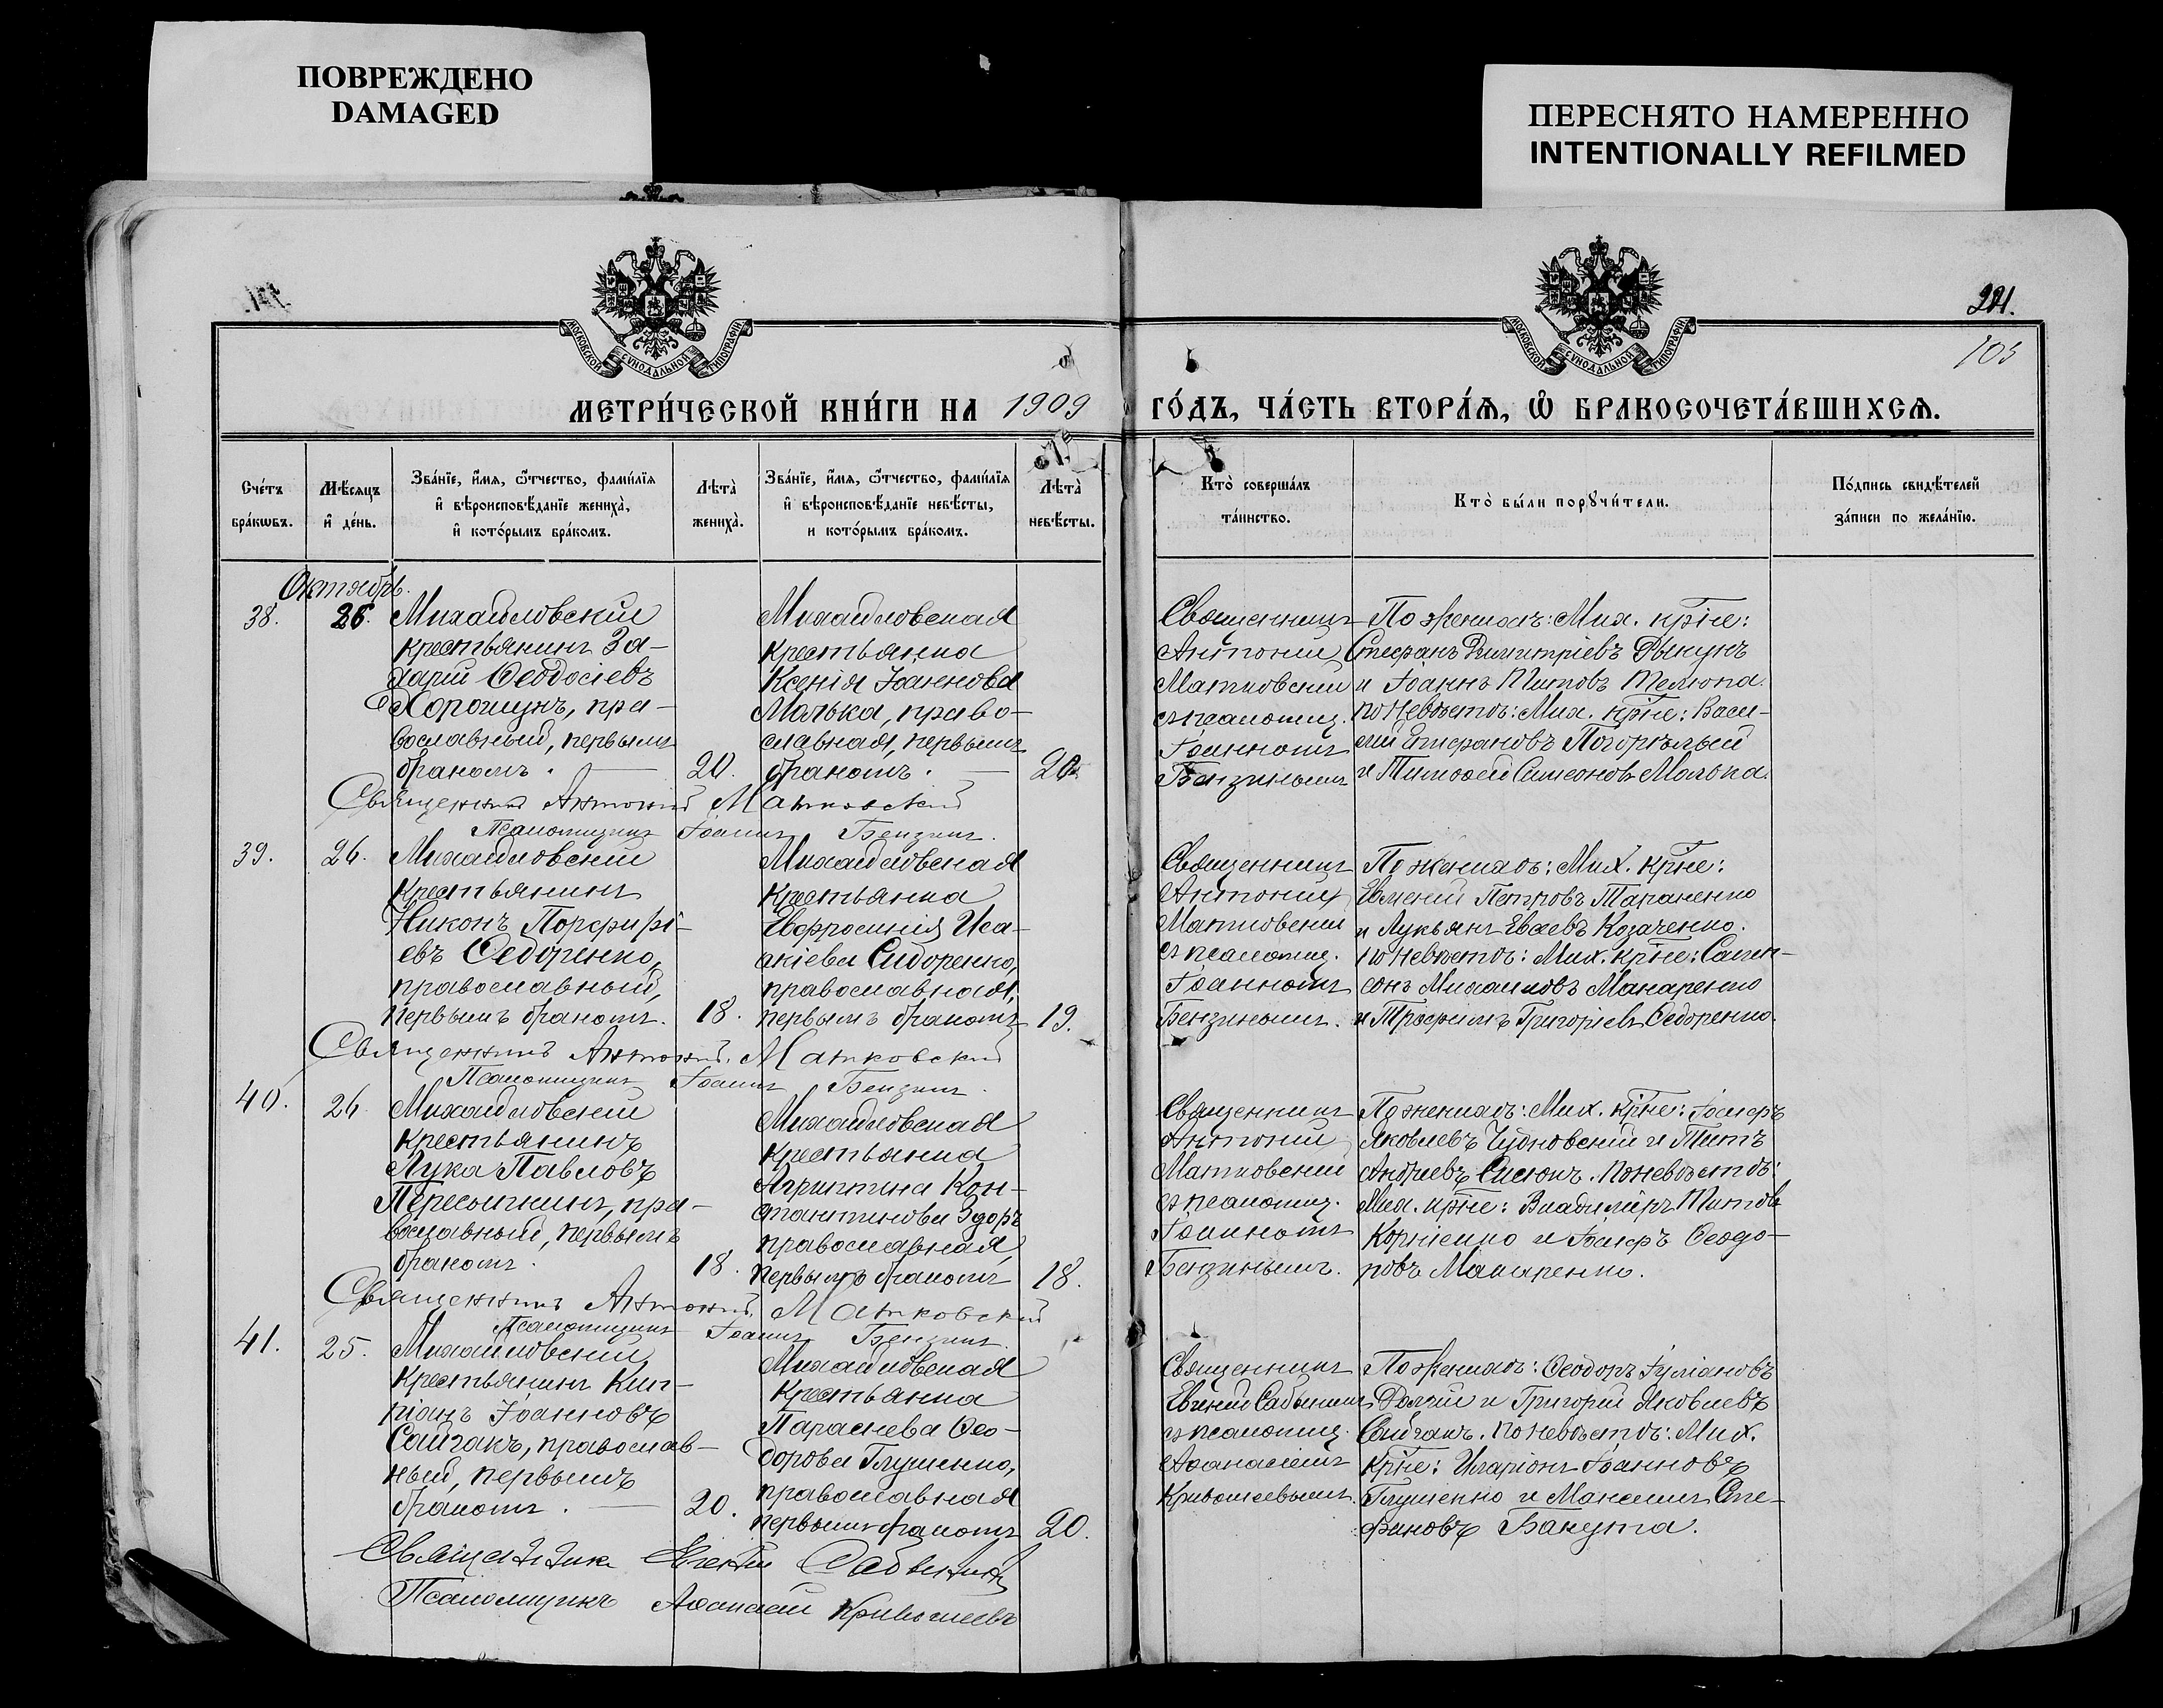 ПОВРЕЖДЕНО
DAMAGED
ПЕРЕСНЯТО НАМЕРЕННО
INTENTIONALLY REFILMED
МОСКОВСКОЙ СѴНОДАЛЬНОЙ ТИПОГРАФІИ
МОСКОВСКОЙ СѴНОДАЛЬНОЙ ТИПОГРАФІИ
221.
103
МЕТРИ́ЧЕСКОЙ КНИ́ГИ НА 1909 ГО́ДЪ, ЧА́СТЬ ВТОРА́Ѧ, Ѽ БРАКОСОЧЕТА́ВШИХСѦ.
Сче́тъ
бра́кѡвъ.
Мѣ́сѧцъ
и҆ де́нь.
Зва́нїе, и҆́мѧ, ѿтчество, фами́лїѧ
и҆ вѣроисповѣ́данїе жениха̀,
и҆ кото́рымъ бра́комъ.
Лѣта̀
жениха̀.
Зва́нїе, и҆́мѧ, ѿтчество, фами́лїѧ
и҆ вѣроисповѣ́данїе невѣ́сты,
и кото́рымъ бра́комъ.
Лѣта̀
невѣ́сты.
Кто̀ соверша́лъ
та́инство.
Кто̀ бы́ли порꙋчи́тели.
По́дпись свидѣ́телей
за́писи по жела́нїю.
Октябрь.
38.
26.
Михайловскій
крестьянинъ За-
харій Ѳеодосіевъ
Хорошунъ, пра-
вославный, первымъ
бракомъ.
20.
Михайловская
крестьянка
Ксенія Іоаннова
Малька, право-
славная, первымъ
бракомъ.
20.
Священникъ
Антоній
Матковскій
съ псаломщ.
Іоанномъ
Бензинымъ
По женихѣ: Мих. кр-не:
Стефанъ Димитріевъ Дыкунъ
и Іоаннъ Титовъ Телюпа.
по невѣстѣ: Мих. кр-не: Васи-
лій Стефановъ Погорѣлый
и Тимоѳей Симеоновъ Малька.
Священникъ Антоній Матковскій
Псаломщикъ Іоаннъ Бензинъ.
39.
26.
Михайловскій
крестьянинъ
Никонъ Порфирі-
евъ Ѳедоренко,
православный,
первымъ бракомъ.
18.
Михайловская
крестьянка
Евфросинія Иса-
акіева Сидоренко,
православная,
первымъ бракомъ
19.
Священникъ
Антоній
Матковскій
съ псаломщ.
Іоанномъ
Бензинымъ.
По женихѣ: Мих. кр-не:
Евменій Петровъ Тараненко
и Лукьянъ Козаченко.
по невѣстѣ: Мих. кр-не: Самп-
сонъ Михаиловъ Макаренко
и Трофимъ Григоріевъ Ѳедоренко.
Священникъ Антоній Матковскій
Псаломщикъ Іоаннъ Бензинъ.
40.
26.
Михайловскій
крестьянинъ
Лука Павловъ
Пересыпкинъ, пра-
вославный, первымъ
бракомъ.
18.
Михайловская
крестьянка
Агриппина Кон-
стантинова Здоръ
православная
первымъ бракомъ
18.
Священникъ
Антоній
Матковскій
съ псаломщ.
Іоанномъ
Бензинымъ.
По женихѣ: Мих. кр-не: Іосифъ
Яковлевъ Чудновскій и Титъ
Андреевъ Сисюкъ. По невѣстѣ:
Мих. кр-не: Владиміръ Титовъ
Корніенко и Іосифъ Ѳеодо-
ровъ Макаренко.
Священникъ Антоній Матковскій
Псаломщикъ Іоаннъ Бензинъ.
41.
25.
Михайловскій
крестьянинъ Кип-
ріанъ Іоанновъ
Сайгакъ, православ-
ный, первымъ
бракомъ.
20.
Михайловская
крестьянка
Параскева Ѳео-
дорова Глушенко,
православная
первымъ бракомъ
20.
Священникъ
Евгеній
съ псаломщ.
Аѳанасіемъ
Кривошеевымъ.
По женихѣ: Ѳеодоръ Іуліановъ
Долгій и Григорій Яковлевъ
Сайгакъ. По невѣстѣ: Мих.
кр-не: Иларіонъ Іоанновъ
Глушенко и Максимъ Сте-
фановъ Бакута.
Священникъ Евгеній
Псаломщикъ Аѳанасій Кривошеевъ